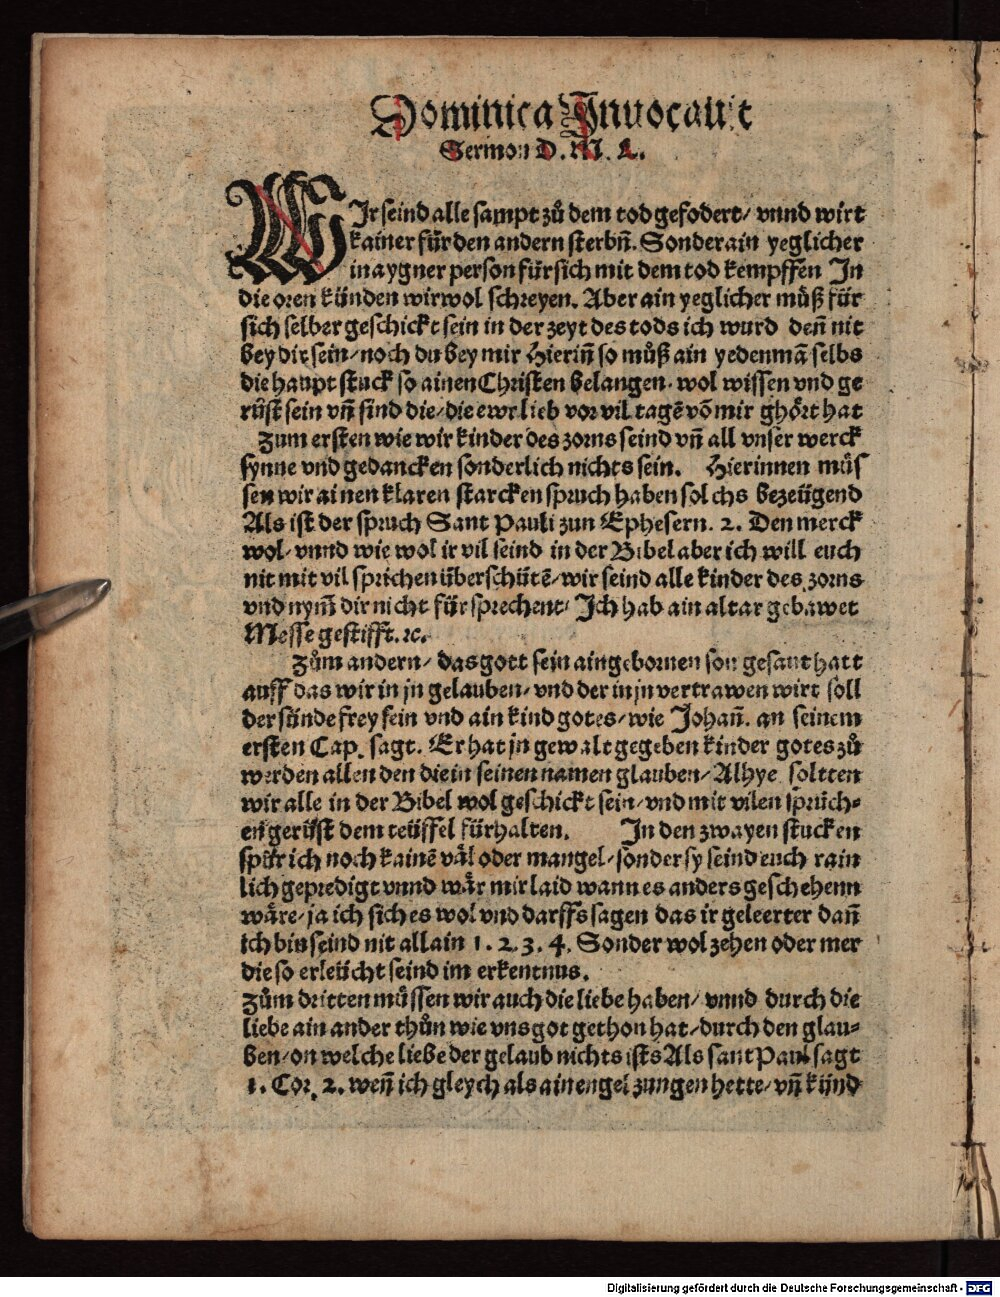 Dominica Inuocauit
Sermon D. M. L.
WIr seind alle sampt zů dem tod gefodert/ vnnd wirt
kainer für den andern sterbñ. Sonder ain yeglicher
in aygner person für sich mit dem tod kempffen In
die oren künden wir wol schreyen. Aber ain yeglicher můß für
sich selber geschickt sein in der zeyt des tods ich wurd deñ nit
bey dir sein/ noch du bey mir Hieriñ so můß ain yedenmã selbs
die haupt stuck so ainen Christen belangen/ wol wissen vnd ge
rüst sein vñ sind die/ die ewr lieb vor vil tagẽ võ mir ghört hat
Zum ersten wie wir kinder des zorns seind vñ all vnser werck
synne vnd gedancken sonderlich nichts sein. Hierinnen müs
sen wir ainen klaren starcken spruch haben solchs bezeügend
Als ist der spruch Sant Pauli zun Ephesern. 2. Den merck
wol/ vnnd wie wol ir vil seind in der Bibel aber ich will euch
nit mit vil sprichen überschütẽ/ wir seind alle kinder des zorns
vnd nym̃ dir nicht für sprechent/ Ich hab ain altar gebawet
Messe gestifft. ꝛc.
Zům andern/ das gott sein aingebornen son gesant hatt
auff das wir in jn gelauben/ vnd der in jn vertrawen wirt soll
der sünde frey sein vnd ain kind gotes/ wie Johañ. an seinem
ersten Cap. sagt. Er hat jn gewalt gegeben kinder gotes zů
werden allen den die in seinen namen glauben/ Alhye soltten
wir alle in der Bibel wol geschickt sein/ vnd mit vilen sprüch-
en gerüst dem teüffel fürhalten. In den zwayen stucken
spür ich noch kainẽ väl oder mangel/ sonder sy seind euch rain
lich gepredigt vnnd wär mir laid wann es anders geschehenn
wäre/ ja ich sich es wol vnd darffs sagen das ir geleerter dañ
ich bin seind nit allain 1. 2. 3. 4. Sonder wol zehen oder mer
die so erleücht seind im erkentnus.
Zům dritten müssen wir auch die liebe haben/ vnnd durch die
liebe ain ander thůn wie vns got gethon hat/ durch den glau-
ben/ on welche liebe der gelaub nichts ists Als sant Paul sagt
1. Cor. 2. weñ ich gleych als ain engel zungen hette/ vñ künd
Digitalisierung gefördert durch die Deutsche Forschungsgemeinschaft - DFG